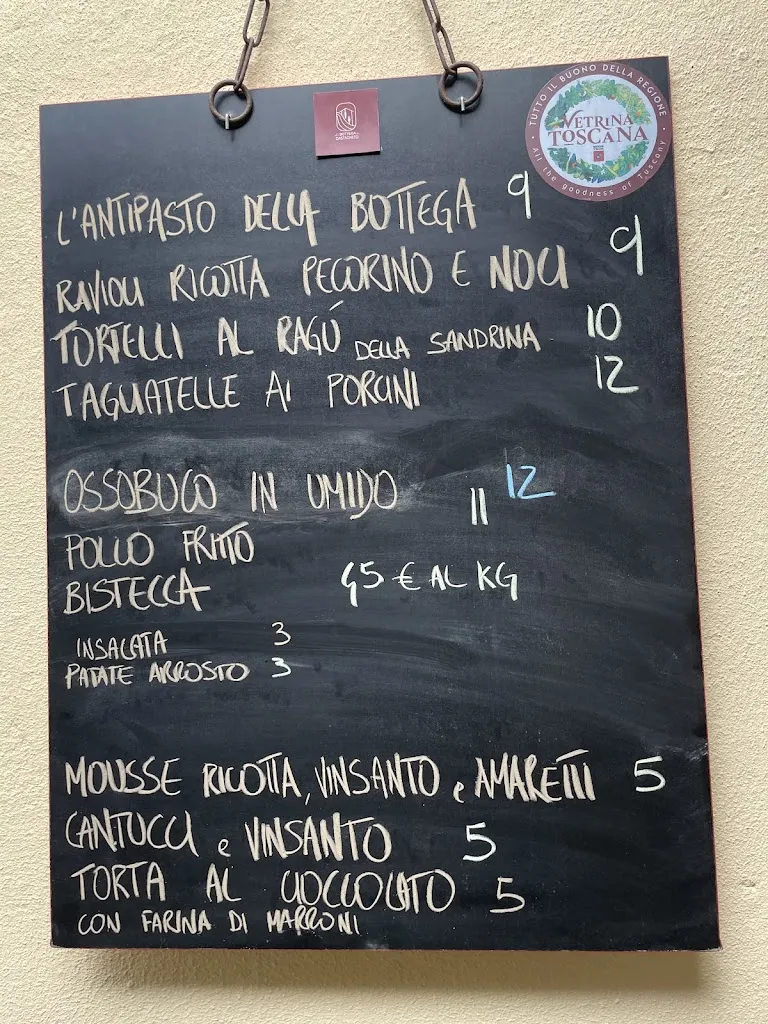 TUTTO IL BUONO DELLA REGIONE
VETRINA
TOSCANA
All the goodness of Tuscany
L'ANTIPASTO DELLA BOTTEGA 9
RAVIOLI RICOTTA PECORINO E NOCI 9
TORTELLI AL RAGÚ DELLA SANDRINA 10
TAGLIATELLE AI PORCINI 12
OSSOBUCO IN UMIDO 12
POLLO FRITTO 11
BISTECCA 45 € AL KG
INSALATA 3
PATATE ARROSTO 3
MOUSSE RICOTTA, VINSANTO e AMARETTI 5
CANTUCCI e VINSANTO 5
TORTA AL CIOCCOLATO 5
CON FARINA DI MARRONI